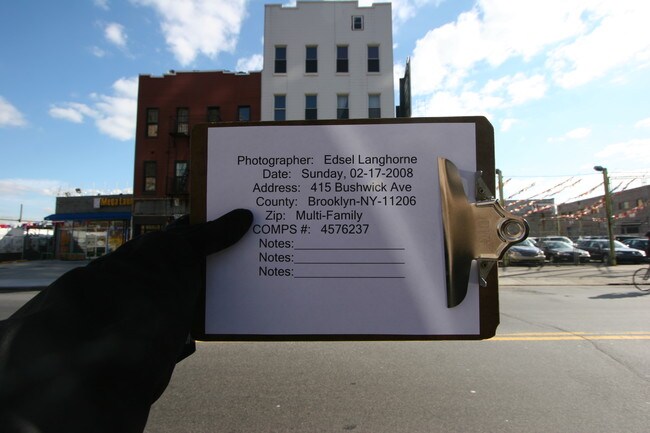 Photographer: Edsel Langhorne
Date: Sunday, 02-17-2008
Address: 415 Bushwick Ave
County: Brooklyn-NY-11206
Zip: Multi-Family
COMPS #: 4576237
Notes:
Notes:
Notes:
Mega Land